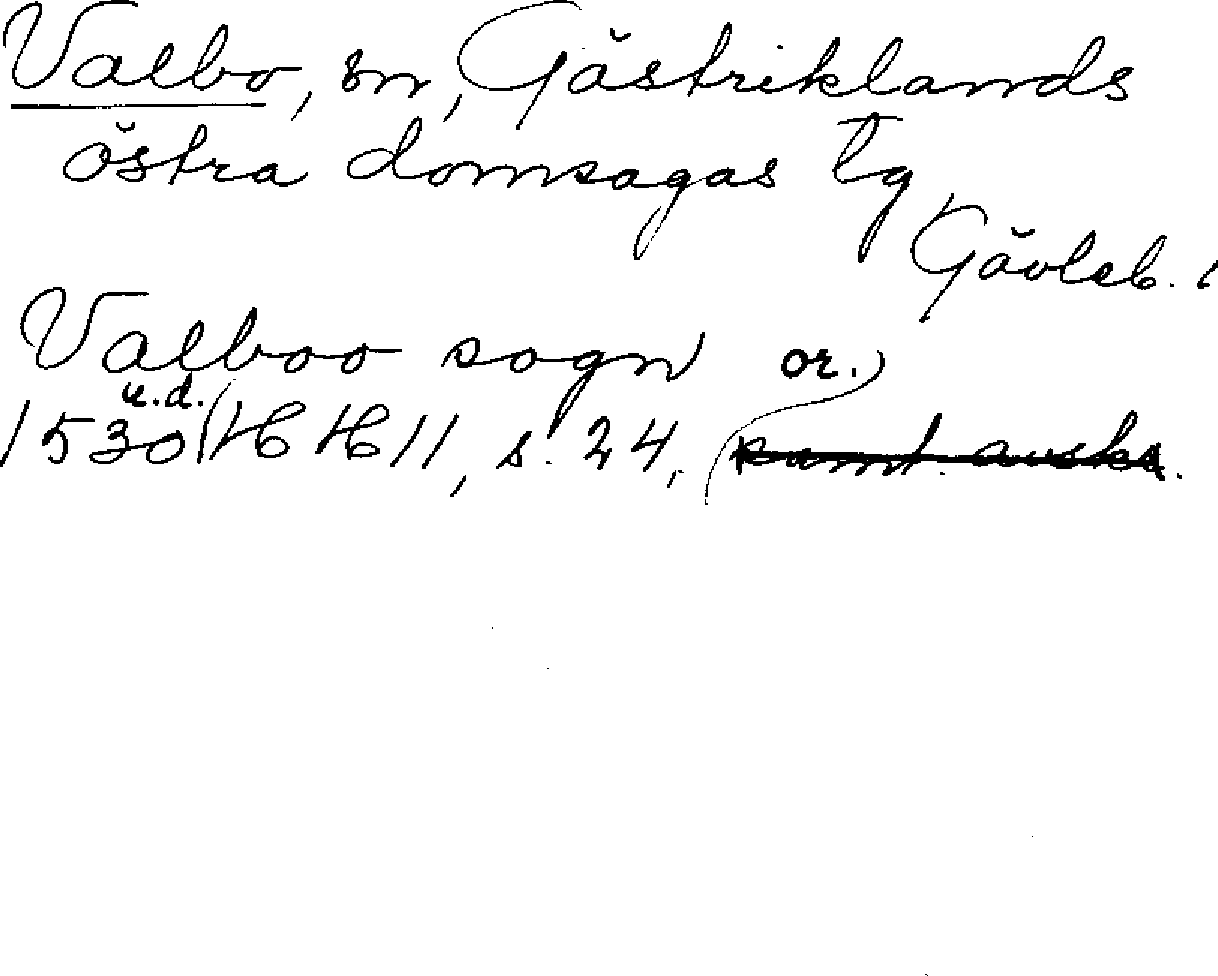 Valbo, sn, Gästriklands
östra domsagas tg,
Gävleb. l
Valboo sogn or.)
u.d.
1530 (HH 11, s. 24, (samt. avskr.